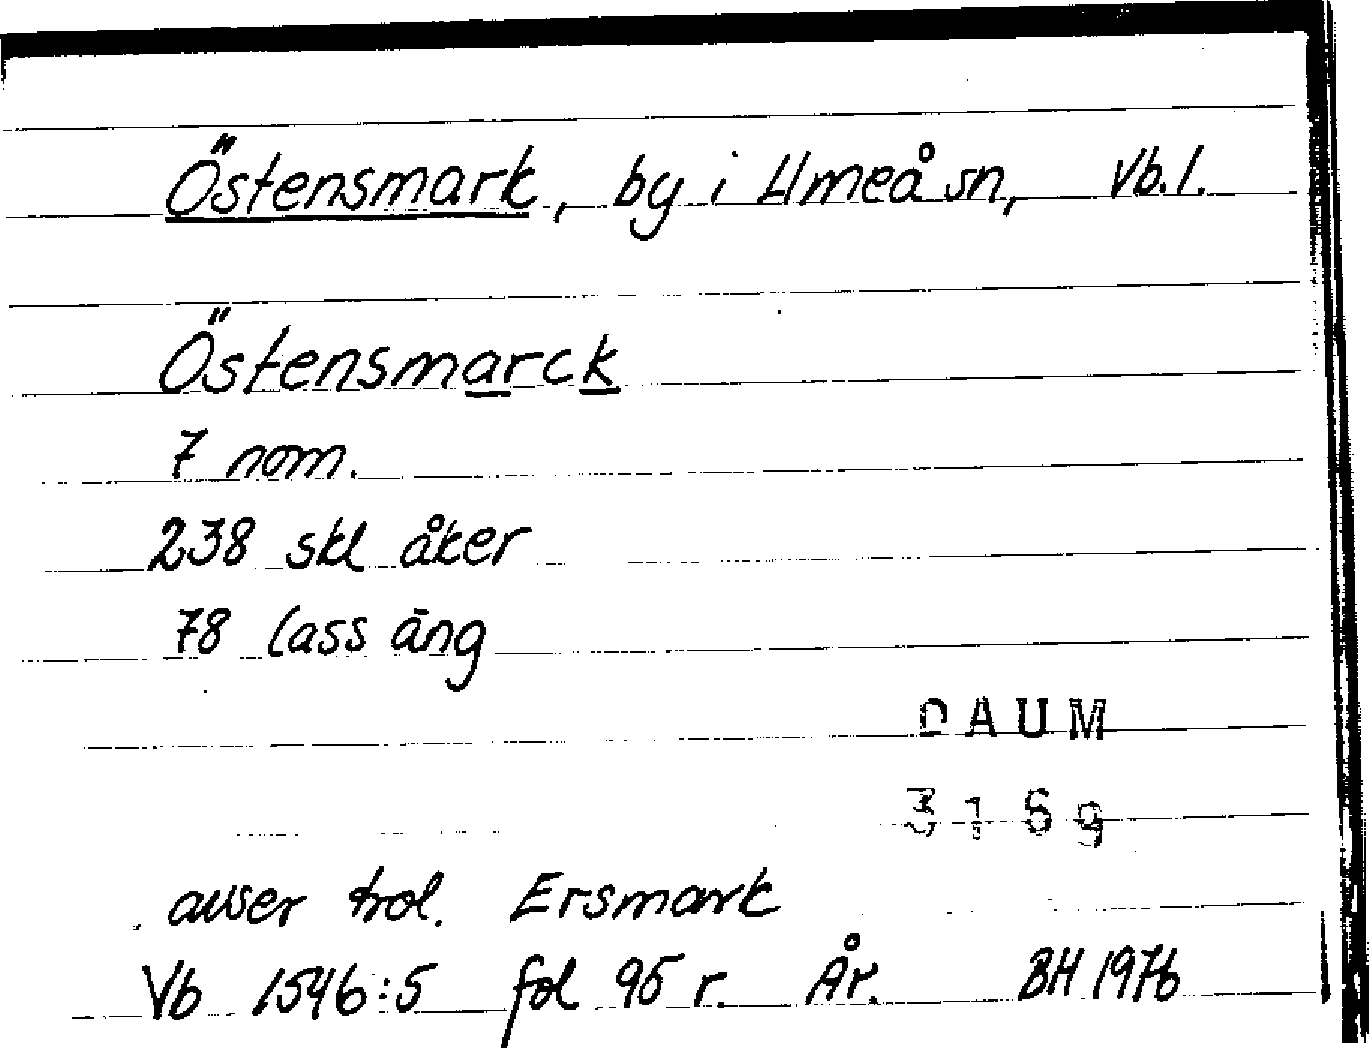 Östensmark, by i Umeå sn, Vb.l.
Östensmarck
7 nom.
238 skl åker
78 lass äng
DAUM
3169
avser trol. Ersmark
Vb 1546:5 fol 95 r. År. BH 1976